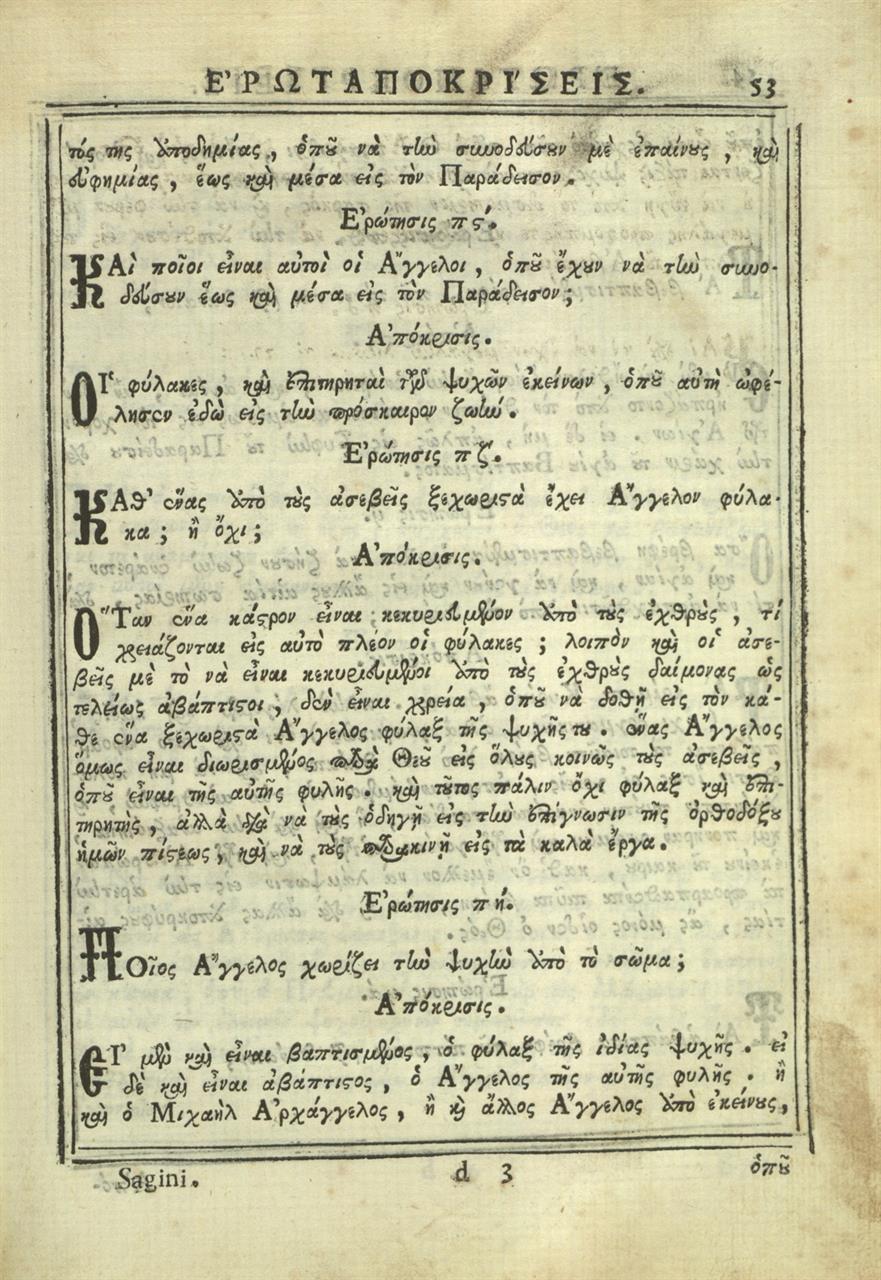 ἘΡΩΤΑΠΟΚΡΊΣΕΙΣ. 53
τός της ἀποδημίας, ὁποῦ νὰ τὴν συνοδεύσουν μὲ ἐπαίνους, καὶ
εὐφημίας, ἕως καὶ μέσα εἰς τὸν Παράδεισον.
Ἐρώτησις πϛʹ.
ΚΑὶ ποῖοι εἶναι αὐτοὶ οἱ Ἄγγελοι, ὁποῦ ἔχουν νὰ τὴν συνο-
δεύσουν ἕως καὶ μέσα εἰς τὸν Παράδεισον;
Ἀπόκρισις.
ΟἹ φύλακες, καὶ ἐπιτηρηταὶ τῶν ψυχῶν ἐκείνων, ὁποῦ αὐτὴ ὠφέ-
λησεν ἐδῶ εἰς τὴν πρόσκαιρον ζωήν.
Ἐρώτησις πζʹ.
ΚΑθ' ἕνας ἀπὸ τοὺς ἀσεβεῖς ξεχωριστὰ ἔχει Ἄγγελον φύλα-
κα; ἢ ὄχι;
Ἀπόκρισις.
ὍΤαν ἕνα κάστρον εἶναι κεκυριευμένον ἀπὸ τοὺς ἐχθροὺς, τί
χρειάζονται εἰς αὐτὸ πλέον οἱ φύλακες; λοιπὸν καὶ οἱ ἀσε-
βεῖς μὲ τὸ νὰ εἶναι κεκυριευμένοι ἀπὸ τοὺς ἐχθροὺς δαίμονας ὡς
τελείως ἀβάπτιστοι, δὲν εἶναι χρεία, ὁποῦ νὰ δοθῇ εἰς τὸν κά-
θε ἕνα ξεχωριστὰ Ἄγγελος φύλαξ τῆς ψυχῆς του. ἕνας Ἄγγελος
ὅμως εἶναι διωρισμένος παρὰ Θεοῦ εἰς ὅλους κοινῶς τοὺς ἀσεβεῖς,
ὁποῦ εἶναι τῆς αὐτῆς φυλῆς. καὶ τοῦτος πάλιν ὄχι φύλαξ καὶ ἐπι-
τηρητὴς, ἀλλὰ διὰ νὰ τοὺς ὁδηγῇ εἰς τὴν ἐπίγνωσιν τῆς ὀρθοδόξου
ἡμῶν πίστεως, καὶ νὰ τοὺς παρακινῇ εἰς τὰ καλὰ ἔργα.
Ἐρώτησις πή.
ΠΟῖος Ἄγγελος χωρίζει τὴν ψυχὴν ἀπὸ τὸ σῶμα;
Ἀπόκρισις.
ΕἸ μὲν καὶ εἶναι βαπτισμένος, ὁ φύλαξ τῆς ἰδίας ψυχῆς. εἰ
δὲ καὶ εἶναι ἀβάπτιστος, ὁ Ἄγγελος τῆς αὐτῆς φυλῆς. ἢ
καὶ ὁ Μιχαὴλ Ἀρχάγγελος, ἢ καὶ ἄλλος Ἄγγελος ἀπὸ ἐκείνους,
Sagini. d 3 ὁποῦ